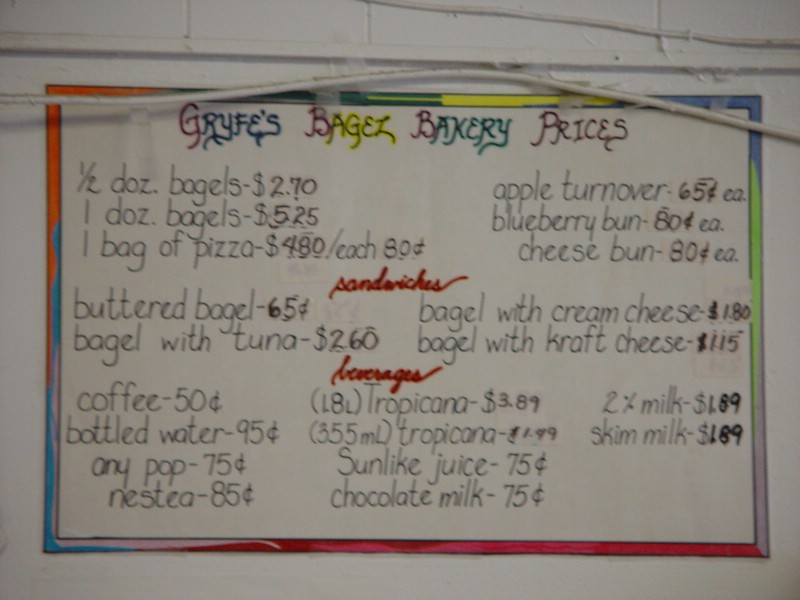 GRYFE'S BAGEL BAKERY PRICES
½ doz. bagels-$2.70
1 doz. bagels-$5.25
1 bag of pizza-$4.80/each 80¢
apple turnover-65¢ ea.
blueberry bun-80¢ ea.
cheese bun-80¢ ea.
sandwiches
buttered bagel-65¢
bagel with tuna-$2.60
bagel with cream cheese-$1.80
bagel with kraft cheese-$1.15
beverages
coffee-50¢
bottled water-95¢
any pop-75¢
nestea-85¢
(1.8L) Tropicana-$3.89
(355mL) tropicana-$1.99
Sunlike juice-75¢
chocolate milk-75¢
2% milk-$1.89
skim milk-$1.89